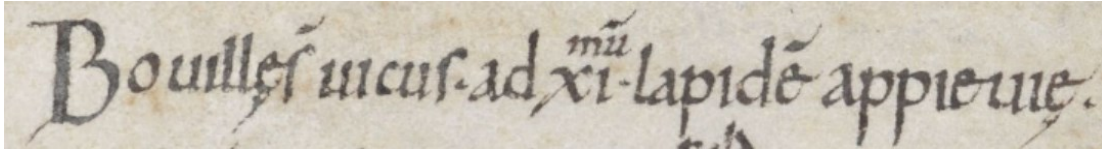 Bouillęs̄ uicus· ad xi·mū lapidē appie uię.